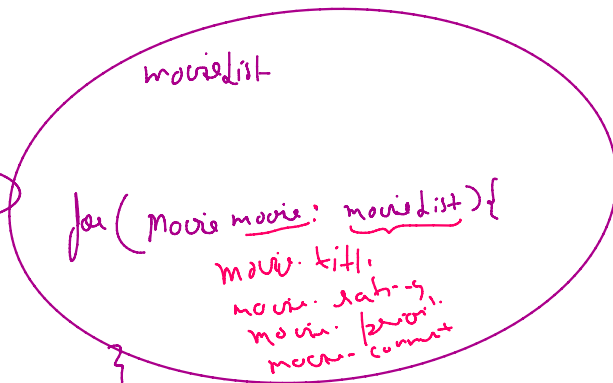 movieList
for ( Movie movie : movieList ) {
movie. titl
movie. rating
movie.
movie. comment
}